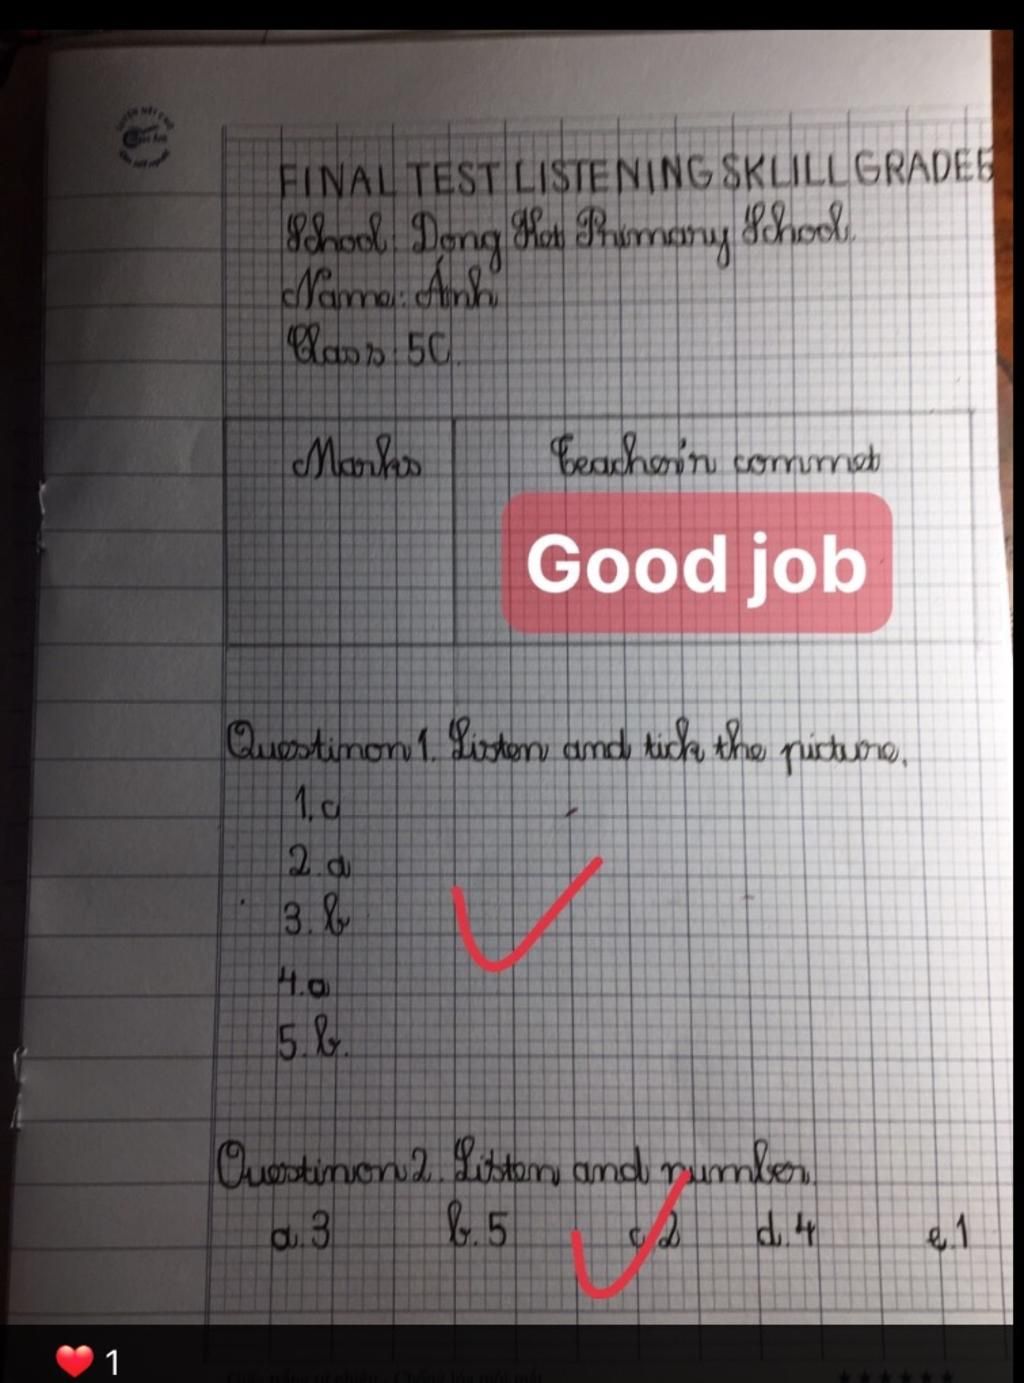 FINAL TEST LISTENING SKLILL GRADE 5
School: Dong Hoi Primary School.
Name: Ánh
Class: 5C.
Marks
Teacher's commet
Good job
Questinon 1. Listen and tick the picture.
1. c
2. a
3. b
4. a
5. b.
Questinon 2. Listen and number.
a. 3 b. 5 c. 2 d. 4 e. 1
1